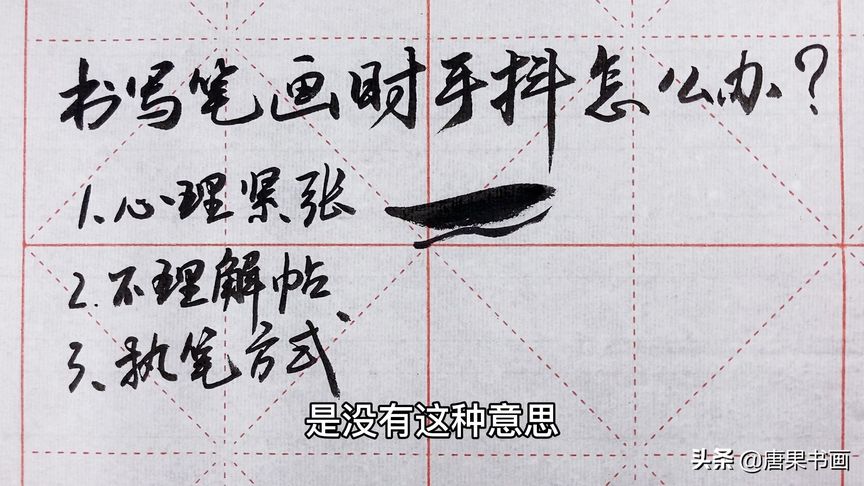 书写笔画时手抖怎么办？
1、心理紧张
2.不理解帖
3、执笔方式
是没有这种意思
头条 @唐果书画